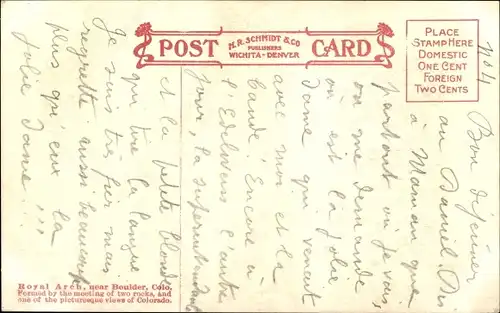 POST CARD
M.R. SCHMIDT & CO
PUBLISHERS
WICHITA - DENVER
PLACE
STAMP HERE
DOMESTIC
ONE CENT
FOREIGN
TWO CENTS
No 4
Bon déjeuner
au Daniel. Dis
à Maman que
partout où je vais
on me demande
où est la jolie
Dame qui venait
avec moi et la
bande! Encore à
l'Edelweiss l'autre
jour, la
et la petite blonde
qui tire la langue
Je suis très fier mais
regrette aussi beaucoup
plus qu'eux la
jolie Dame!!!
Royal Arch, near Boulder, Colo.
Formed by the meeting of two rocks, and
one of the picturesque views of Colorado.